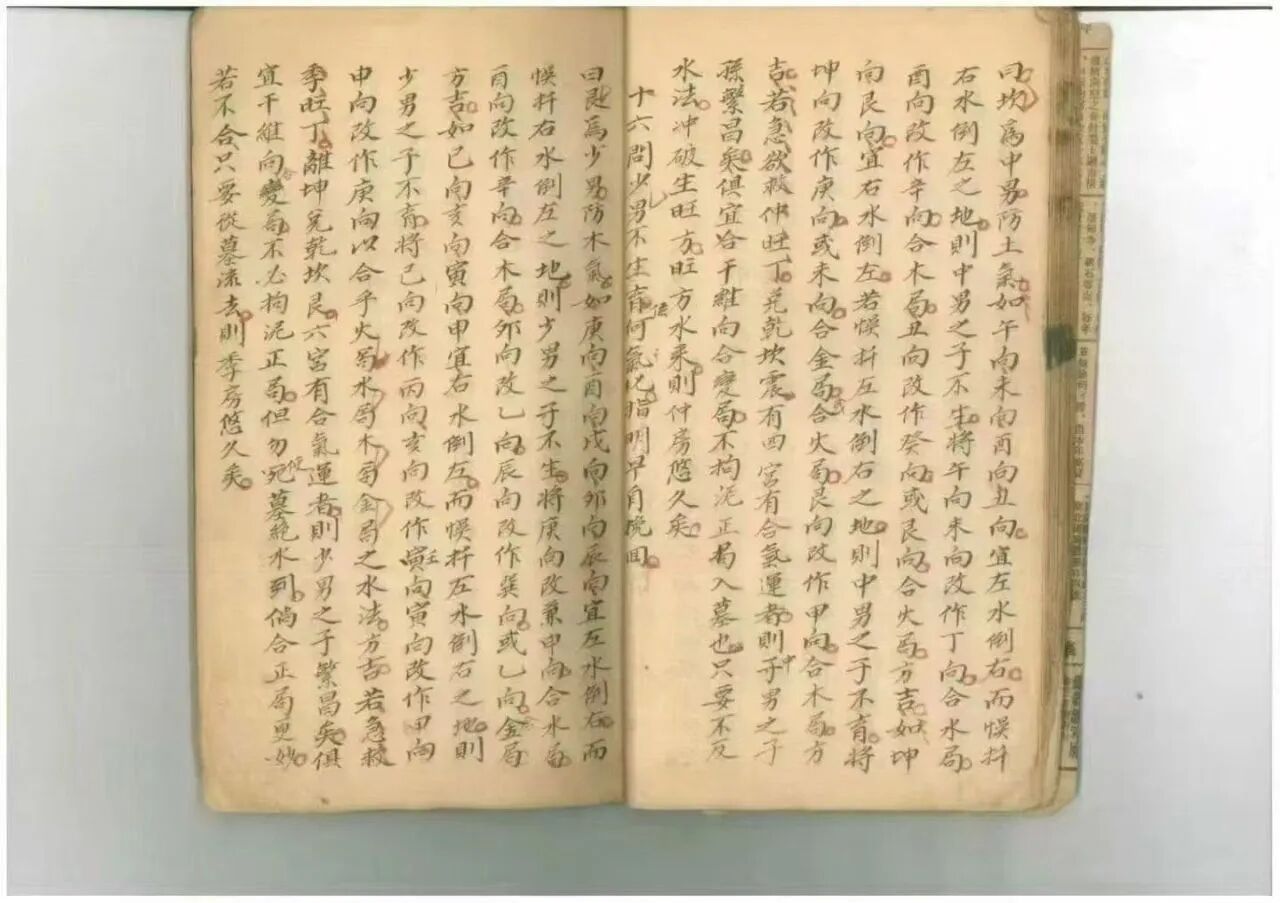 曰坎爲中男防土氣如午向未向酉向丑向宜左水倒右而悞扦
右水倒左之地則中男之子不生將午向未向改作丁向合水局
酉向改作辛向合木局丑向改作癸向或艮向合火局方吉如坤
向艮向宜右水倒左若悞扦左水倒右之地則中男之子不育將
坤向改作庚向或未向合金局合火局艮向改作甲向合木局方
吉若急欲救仲旺丁兑乾坎震有四宮有合氣運者則子中男之子
孫繁昌矣俱宜合干維向合變局不拘泥正局入墓也只要不反
水法冲破生旺方旺方水来則仲房悠久矣
十六問少男不生育何氣化指明早自挽回
曰艮爲少男防木氣如庚向酉向戌向卯向辰向宜左水倒右而
悞扦右水倒左之地則少男之子不生將庚向改兼申向合水局
酉向改作辛向合木局卯向改乙向辰向改作巽向或乙向金局
方吉如巳向亥向寅向甲宜右水倒左而悞扦左水倒右之地則
少男之子不育將巳向改作丙向亥向改作壬向寅向改作甲向
申向改作庚向以合乎火局水局木局金局之水法方吉若急救
季旺丁離坤兑乾坎艮六宮有合氣運者則少男之子繁昌矣俱
宜干維向合變局不必拘泥正局但勿使死墓絶水到倘合正局更妙
若不合只要從墓流去則季房悠久矣